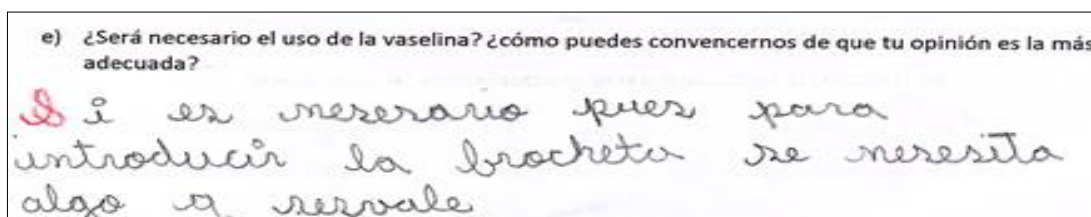 e) ¿Será necesario el uso de la vaselina? ¿cómo puedes convencernos de que tu opinión es la más
adecuada?
Si es neserario pues para
introducir la brocheta se neresita
algo q resvale